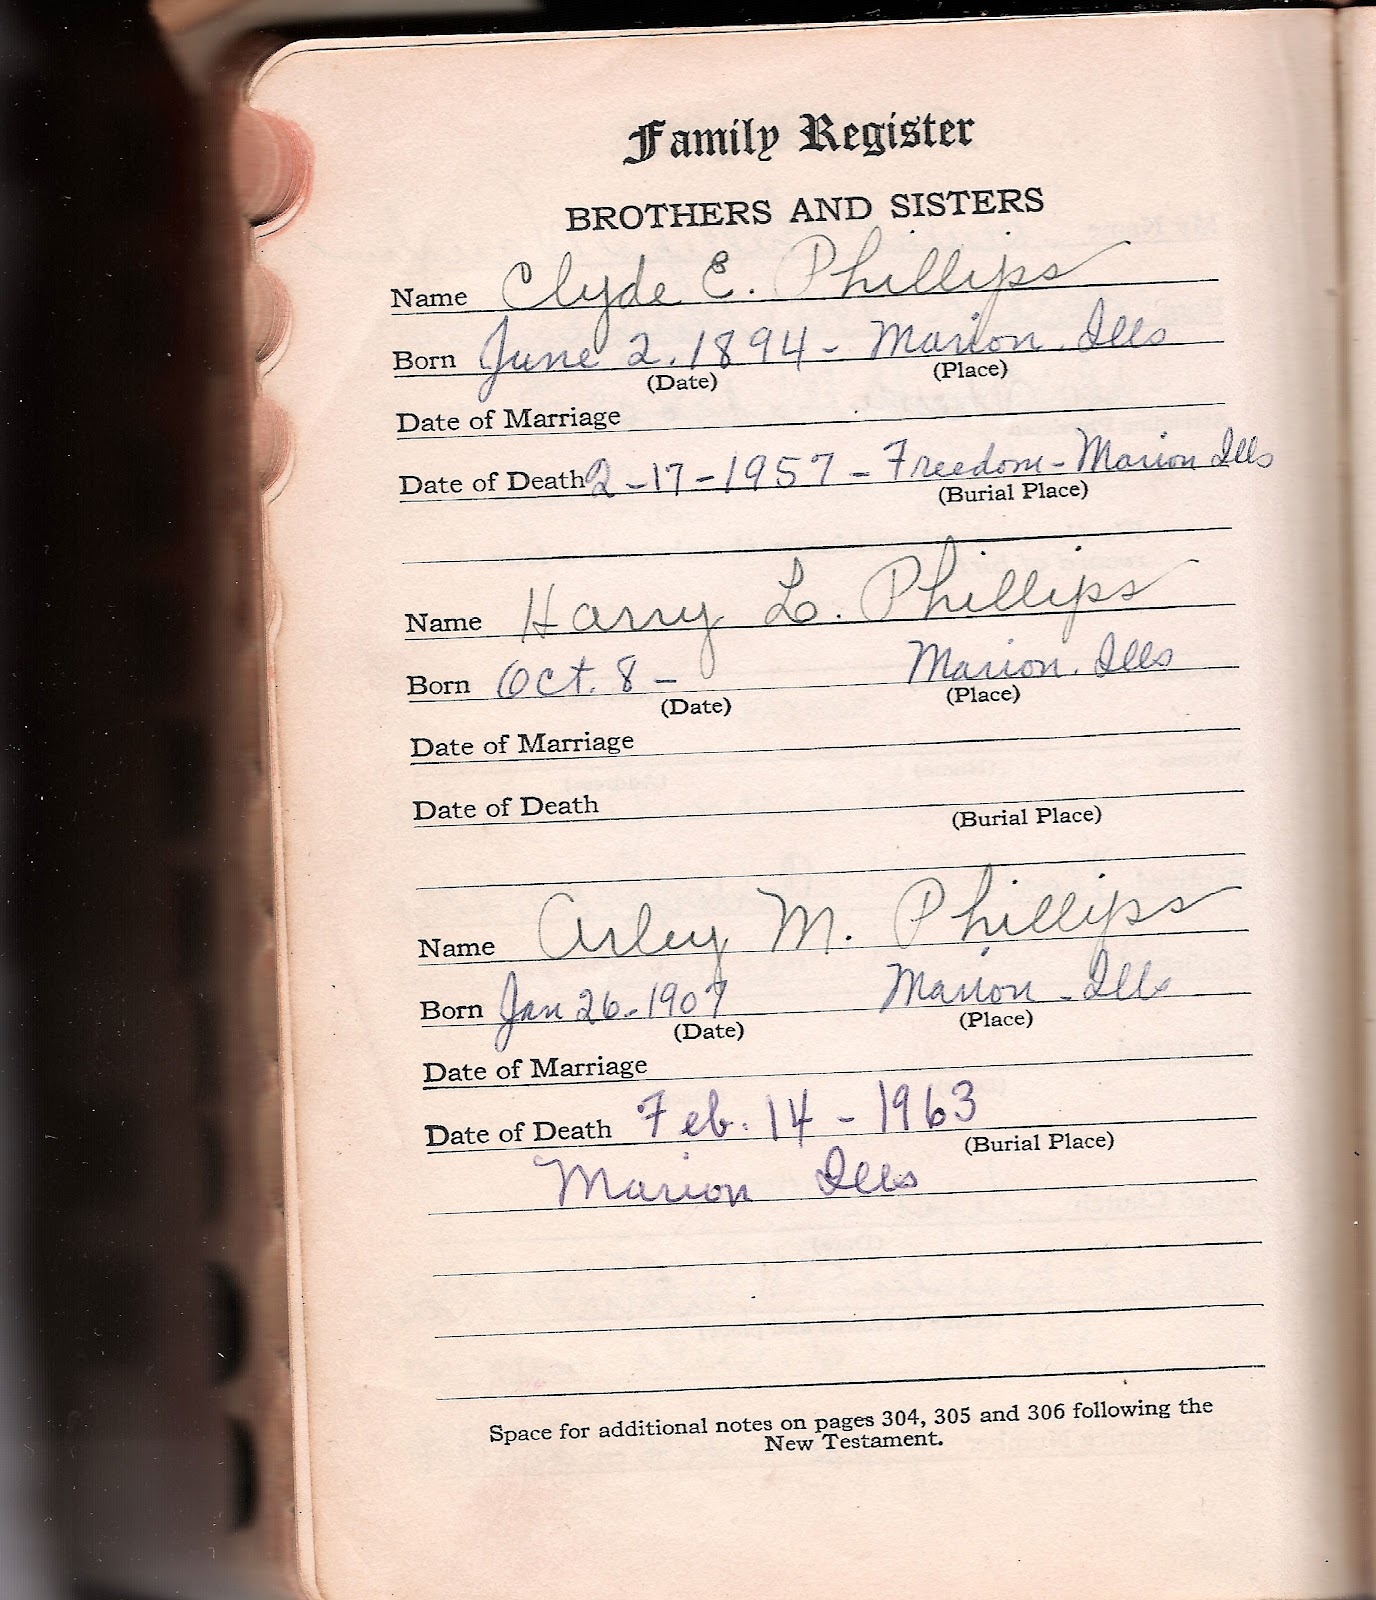 Family Register
BROTHERS AND SISTERS
Name Clyde E. Phillips
Born June 2. 1894 - Marion. Ills
(Date) (Place)
Date of Marriage
Date of Death 2-17-1957 - Freedom - Marion Ills
(Burial Place)
Name Harry L. Phillips
Born Oct. 8 - Marion. Ills
(Date) (Place)
Date of Marriage
Date of Death
(Burial Place)
Name Arley M. Phillips
Born Jan 26-1907 Marion - Ills
(Date) (Place)
Date of Marriage
Date of Death Feb. 14 - 1963
(Burial Place)
Marion Ills
Space for additional notes on pages 304, 305 and 306 following the
New Testament.